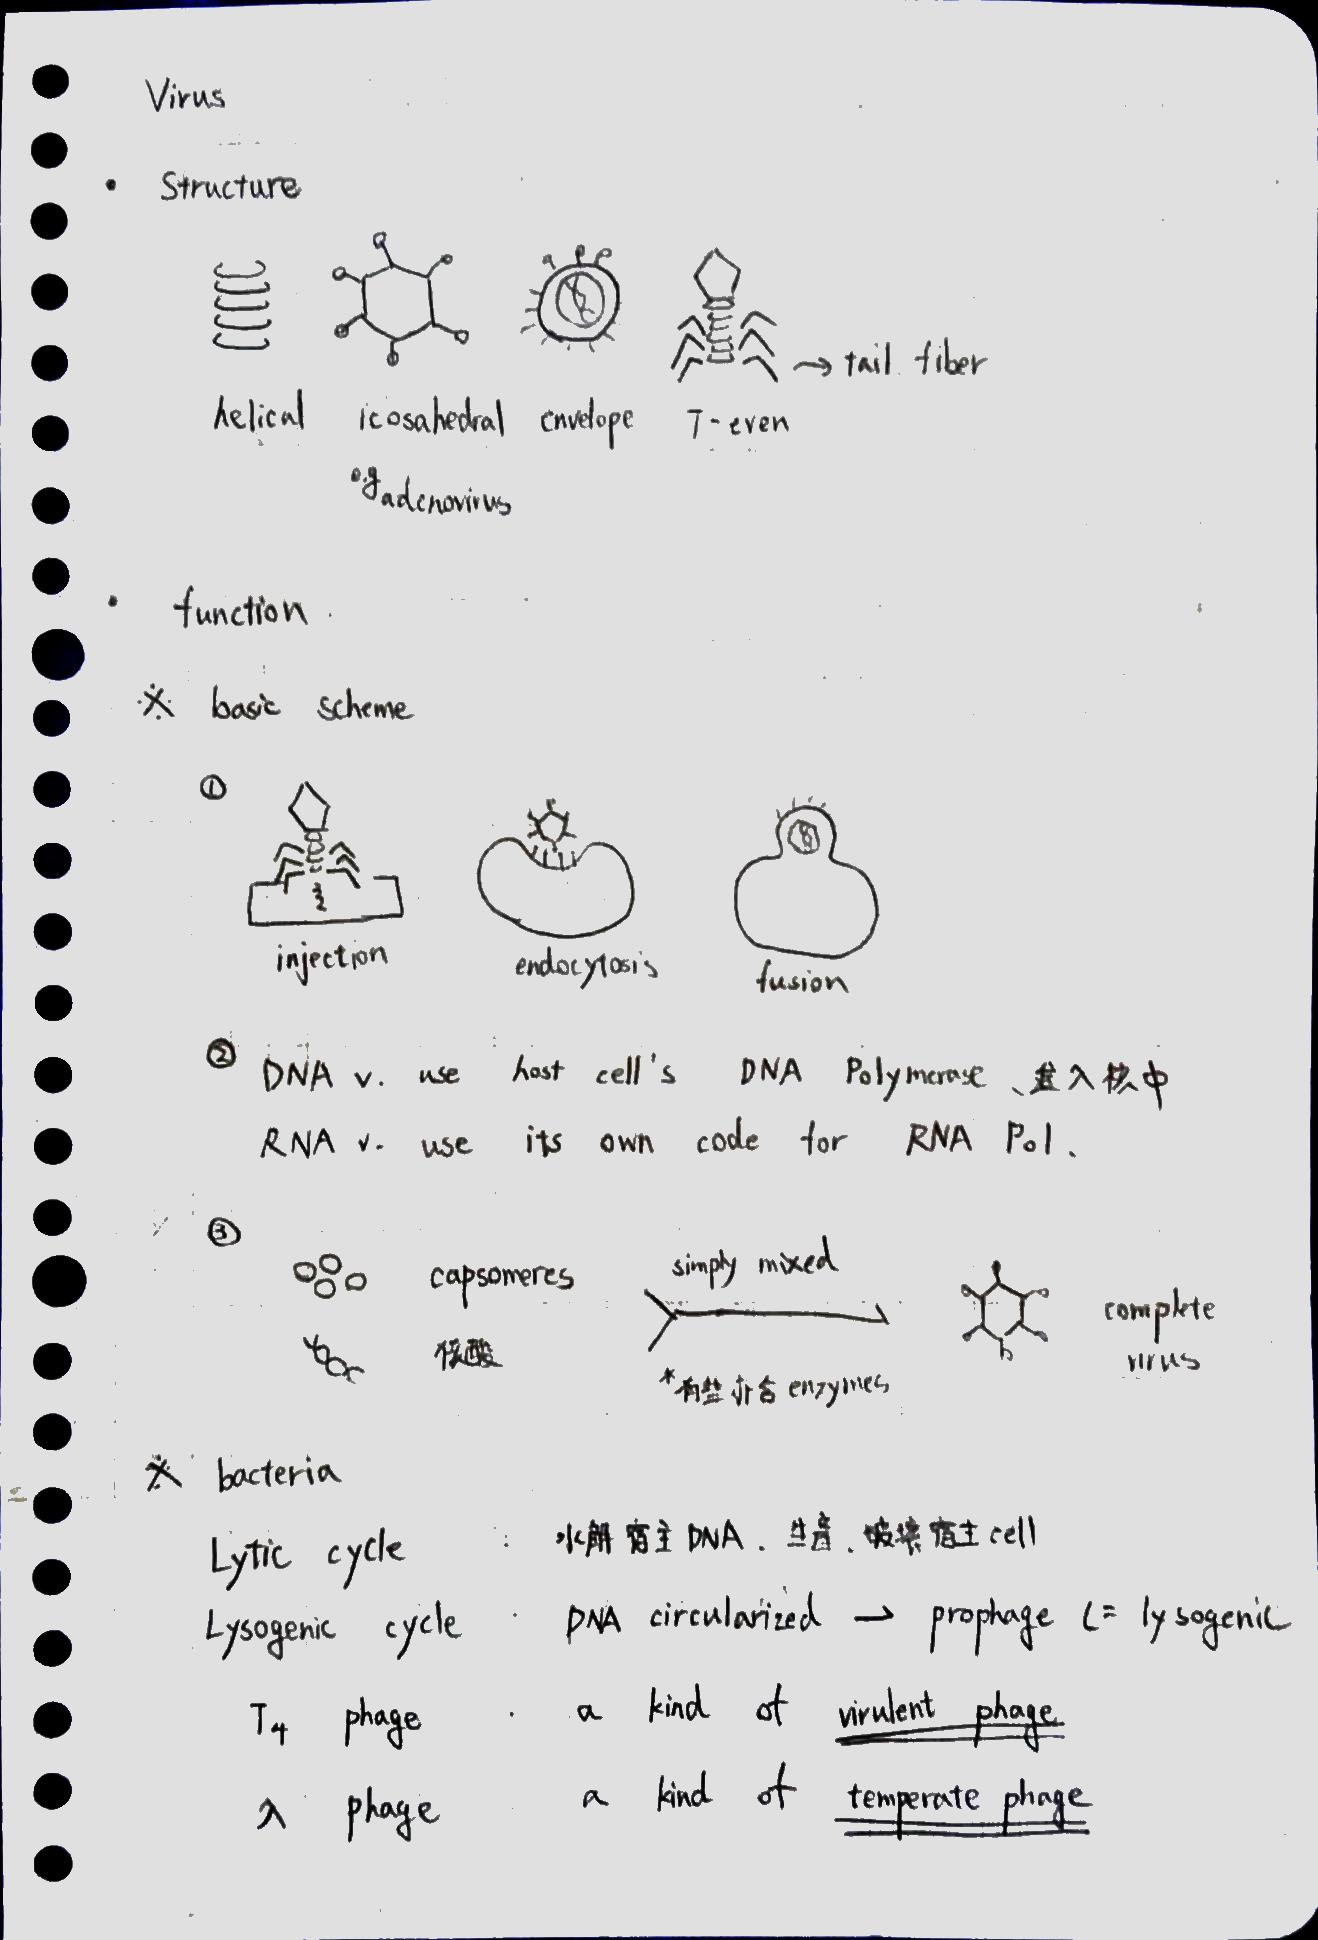 Virus
• Structure
→ tail fiber
helical icosahedral envelope T-even
e.g adenovirus
• function
※ basic scheme
①
injection endocytosis fusion
② DNA v. use host cell's DNA Polymerase、進入核中
RNA v. use its own code for RNA Pol.
③
capsomeres simply mixed
核酸 complete virus
*有些亦含 enzymes
※ bacteria
Lytic cycle : 水解宿主DNA、生產、破壞宿主cell
Lysogenic cycle : DNA circularized → prophage (= lysogenic
T4 phage : a kind of virulent phage
λ phage a kind of temperate phage